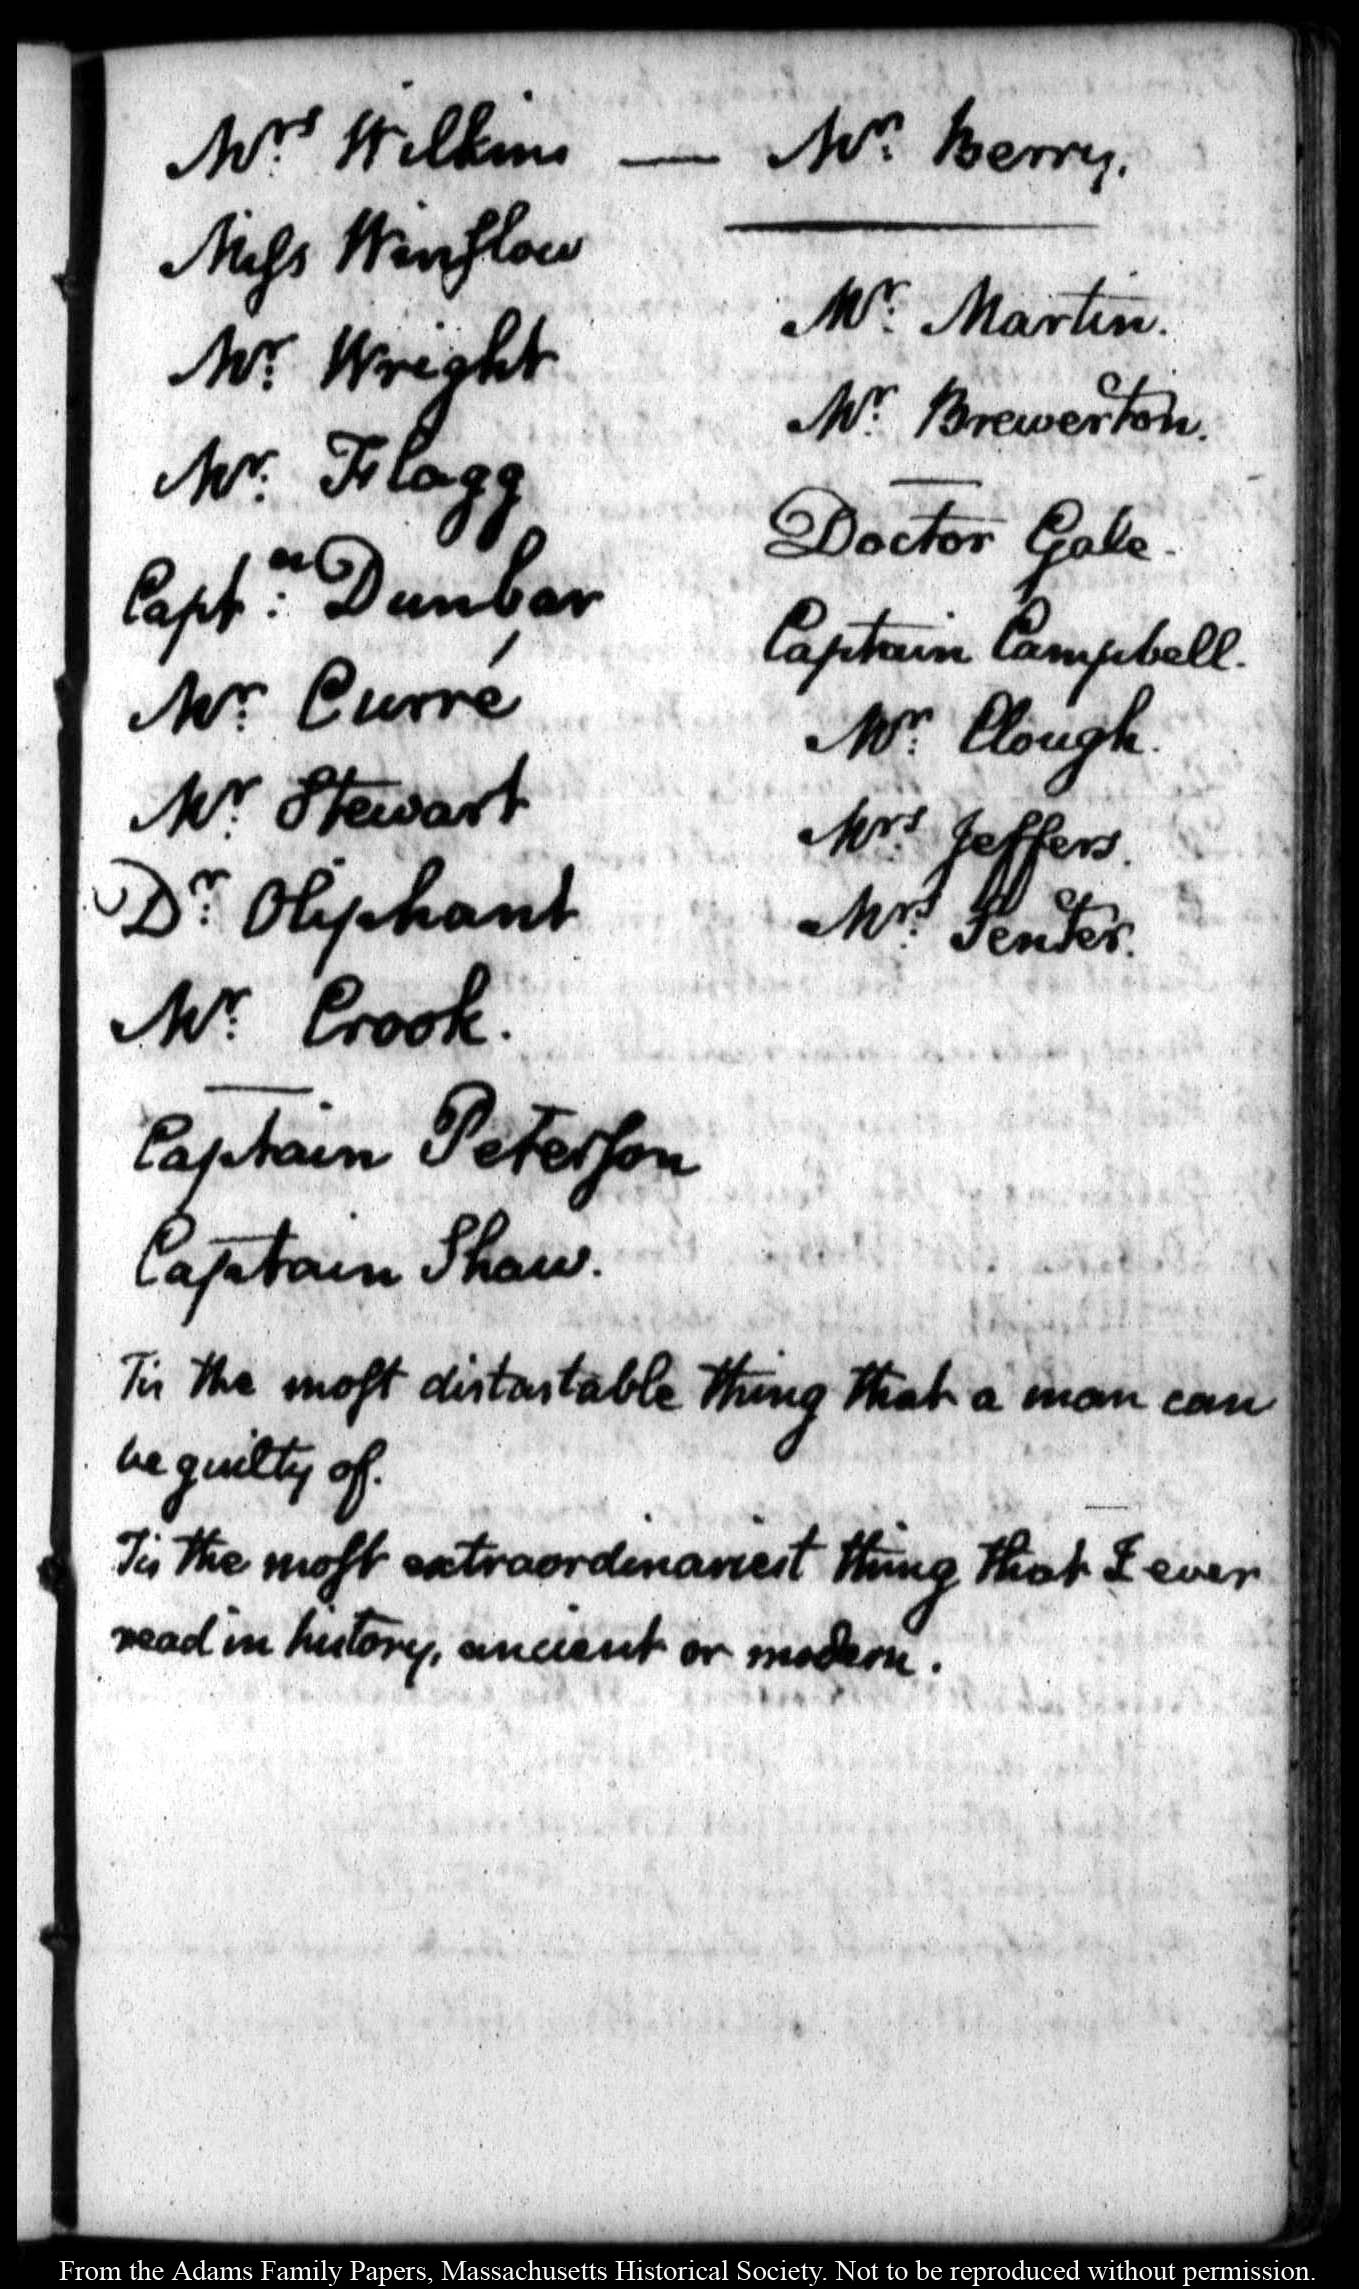 Mrs. Wilkins — Mr. Berry.
Miſs Winſlow
Mr. Wright
Mr. Flagg
Captn: Dunbar
Mr. Curré
Mr. Stewart
Dr. Oliphant
Mr. Crook.
Captain Peterſon
Captain Shaw.
Mr. Martin.
Mr. Brewerton.
Doctor Gale.
Captain Campbell.
Mr. Clough.
Mrs Jeffers.
Mrs. Fenter.
Tis the moſt distastable thing that a man can
be guilty of.
Tis the moſt extraordinariest thing that I ever
read in history, ancient or modern.
From the Adams Family Papers, Massachusetts Historical Society. Not to be reproduced without permission.